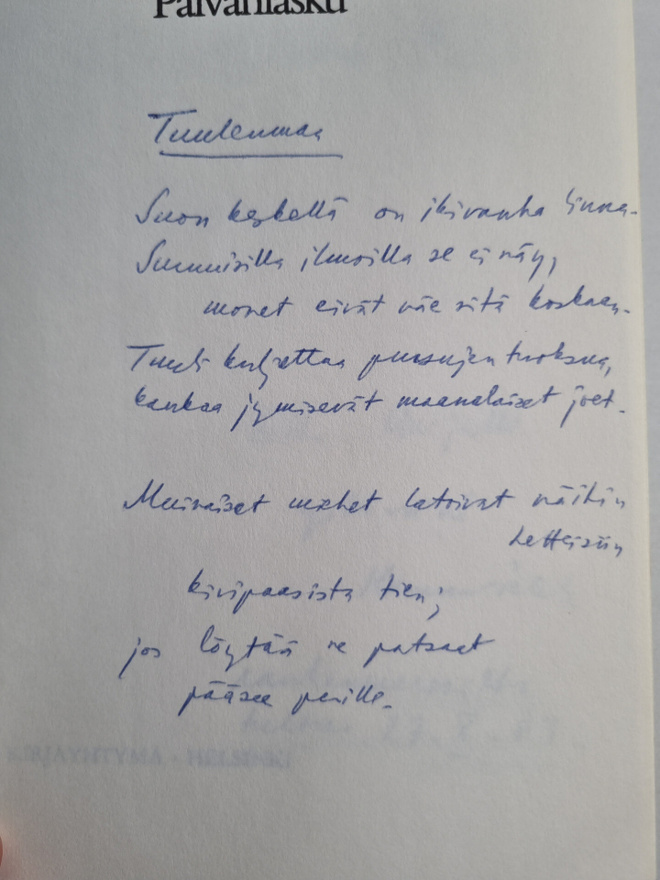 Päivänlasku
Tuulenmaa
Suon keskellä on ikivanha linna.
Summisilla ilmoilla se ei näy,
monet eivät näe sitä koskaan.
Tuuli kuljettaa pursujen tuoksua,
kaukaa jymisevät maanalaiset joet.
Muinaiset miehet latoivat näihin
hetteisiin
kivipaasista tien;
jos löytää ne patsaat
pääsee perille.
KIRJAYHTYMÄ · HELSINKI